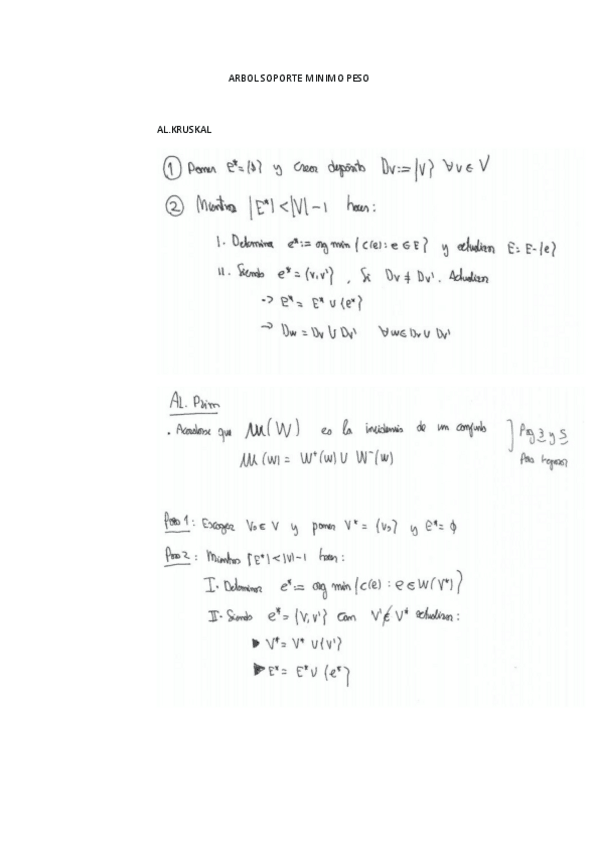 ARBOL SOPORTE MINIMO PESO
AL.KRUSKAL
① Poner E*={∅} y crear depósito Dv:={v} ∀v∈V
② Mientras |E*|<|V|-1 hacer:
I. Determina e*:= arg min{c(e): e∈E} y actualizar E=E-{e}
II. Siendo e*={v,v'}, Si Dv≠Dv'. Actualizar
-> E*= E*∪{e*}
-> Dw = Dv∪Dv' ∀w∈Dv∪Dv'
AL. Prim
. Acordarse que W(W) es la incidencia de un conjunto
W(w) = W⁺(w)∪W⁻(w)
Pag 3 y 5
Para repasar
Paso 1: Escoger V₀∈V y poner V*={V₀} y E*=∅
Paso 2: Mientras |E*|<|V|-1 hacer:
I. Determinar e*:= arg min{c(e): e∈W(V*)}
II. Siendo e*={V,V'} con V'∉V* actualizar:
► V*= V*∪{V'}
► E*= E*∪{e*}